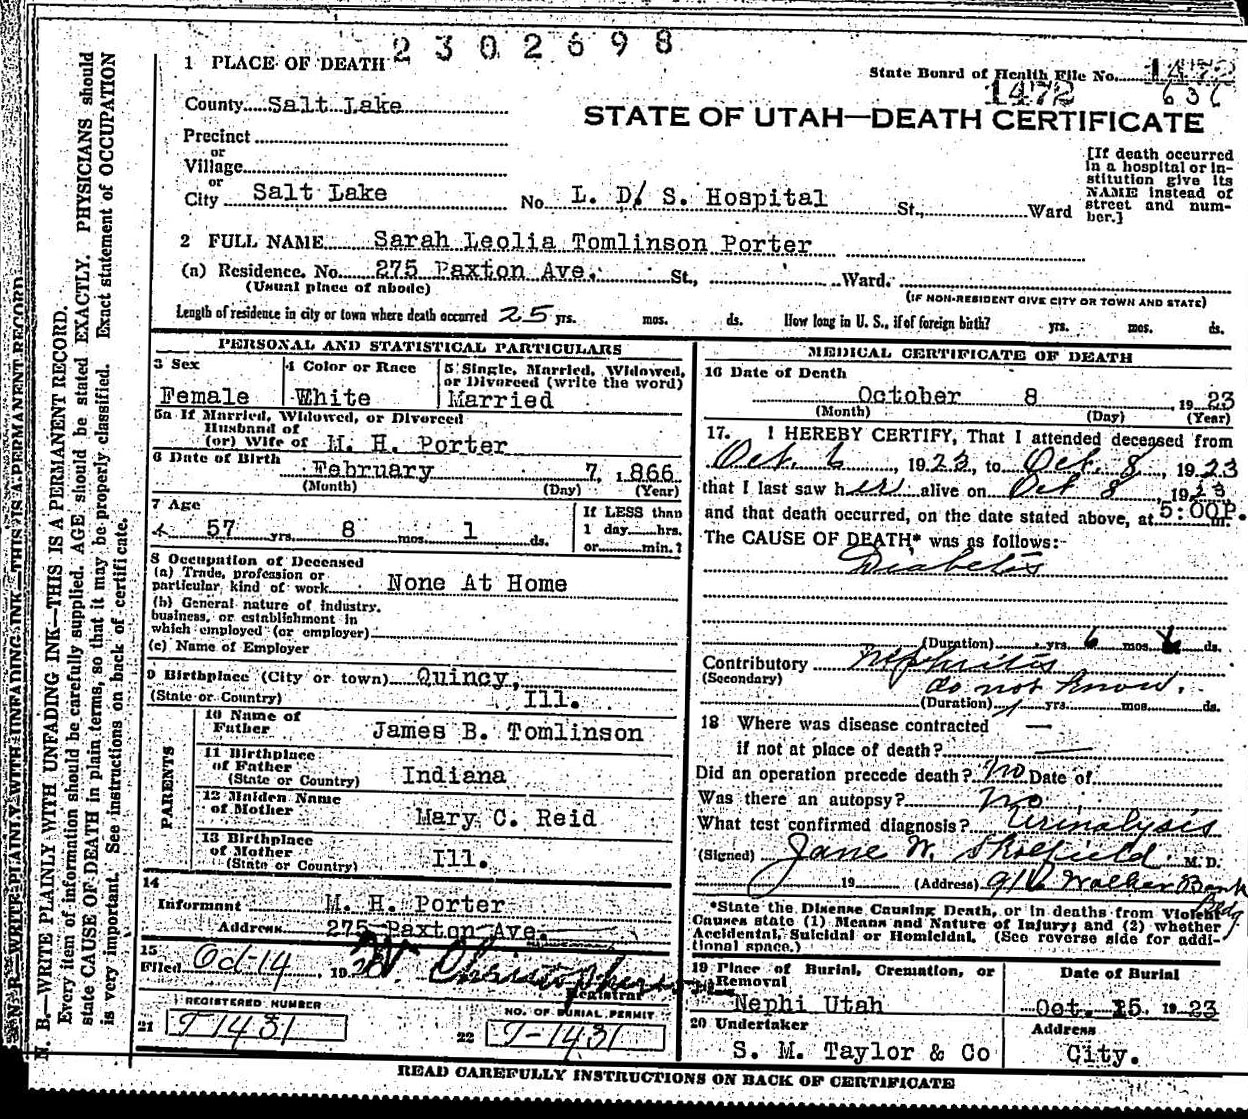 2302698
1 PLACE OF DEATH
State Board of Health File No. 1472
1472 636
County Salt Lake
STATE OF UTAH—DEATH CERTIFICATE
Precinct
or
Village
or
City Salt Lake No. L. D. S. Hospital St., Ward
[If death occurred in a hospital or institution give its NAME instead of street and number.]
2 FULL NAME Sarah Leolia Tomlinson Porter
(a) Residence. No. 275 Paxton Ave. St., Ward.
(Usual place of abode) (IF NON-RESIDENT GIVE CITY OR TOWN AND STATE)
Length of residence in city or town where death occurred 25 yrs. mos. ds. How long in U. S., if of foreign birth? yrs. mos. ds.
PERSONAL AND STATISTICAL PARTICULARS
3 Sex
Female
4 Color or Race
White
5 Single, Married, Widowed, or Divorced (write the word)
Married
5a If Married, Widowed, or Divorced
Husband of
(or) Wife of M. H. Porter
6 Date of Birth
February 7, 1866
(Month) (Day) (Year)
7 Age
57 yrs. 8 mos. 1 ds.
If LESS than
1 day hrs.
or min.?
8 Occupation of Deceased
(a) Trade, profession or
particular kind of work None At Home
(b) General nature of industry,
business, or establishment in
which employed (or employer)
(c) Name of Employer
9 Birthplace (City or town) Quincy,
(State or Country) Ill.
PARENTS
10 Name of
Father James B. Tomlinson
11 Birthplace
of Father
(State or Country) Indiana
12 Maiden Name
of Mother Mary C. Reid
13 Birthplace
of Mother
(State or Country) Ill.
14
Informant M. H. Porter
Address 275 Paxton Ave.
15
Filed Oct 14, 19 W. Christopherson
Registrar
REGISTERED NUMBER
21 T 1431
NO. OF BURIAL PERMIT
22 T-1431
MEDICAL CERTIFICATE OF DEATH
16 Date of Death
October 8, 1923
(Month) (Day) (Year)
17. I HEREBY CERTIFY, That I attended deceased from
Oct. 6, 1923, to Oct. 8, 1923
that I last saw her alive on Oct 8, 1923
and that death occurred, on the date stated above, at 5:00P. m.
The CAUSE OF DEATH* was as follows:
Diabetis
(Duration) yrs. 6 mos. ds.
Contributory Nephritis
(Secondary) do not know.
(Duration) yrs. mos. ds.
18 Where was disease contracted —
if not at place of death? —
Did an operation precede death? no Date of
Was there an autopsy? no
What test confirmed diagnosis? Urinalysis
(Signed) Jane W. Skolfield M. D.
19 (Address) 916 Walker Bank Bldg
*State the Disease Causing Death, or in deaths from Violent
Causes state (1) Means and Nature of Injury; and (2) whether
Accidental, Suicidal or Homicidal. (See reverse side for addi-
tional space.)
19 Place of Burial, Cremation, or
Removal
Nephi Utah
Date of Burial
Oct. 15. 1923
20 Undertaker
S. M. Taylor & Co
Address
City.
READ CAREFULLY INSTRUCTIONS ON BACK OF CERTIFICATE
N. B.—WRITE PLAINLY WITH UNFADING INK—THIS IS A PERMANENT RECORD.
Every item of information should be carefully supplied. AGE should be stated EXACTLY. PHYSICIANS should
state CAUSE OF DEATH in plain terms, so that it may be properly classified. Exact statement of OCCUPATION
is very important. See instructions on back of certificate.
N. B.—WRITE PLAINLY WITH UNFADING INK—THIS IS A PERMANENT RECORD